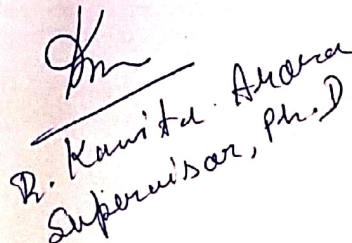 Dr. Kavita Arora
Supervisor, Ph.D